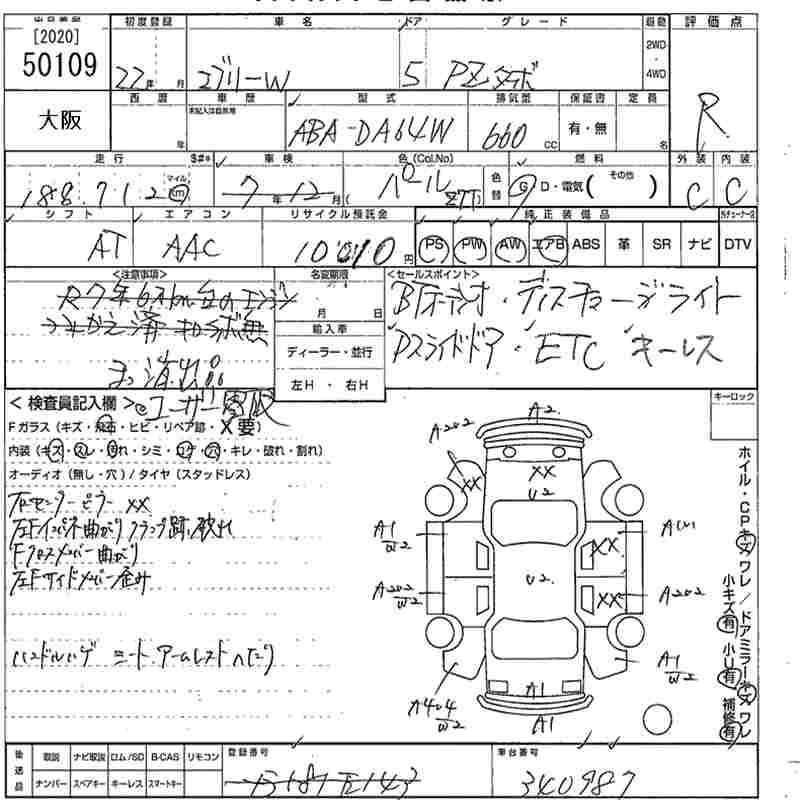 [2020]
50109
大阪
初度登録 車名 ドア グレード 駆動 評価点
22年 月 エブリーW 5 PZターボ 2WD 4WD
R
西暦 車歴 型式 排気量 保証書 定員
年 ABA-DA64W 660 CC 有・無 名
走行 $#* 車検 色(Col.No) 燃料 外装 内装
188,712 マイル km 7年12月 パール Z7T 色替 G・D・電気( その他 ) C C
シフト エアコン リサイクル預託金 純正装備品
AT AAC 10010円 PS PW AW エアB ABS 革 SR ナビ DTV
<注意事項> 名変期限 <セールスポイント>
月 日
輸入車
ディーラー・並行
左H・右H
BTオーディオ・ディスチャージライト
Pスライドドア・ETC キーレス
<検査員記入欄> ユーザー買取
Fガラス(キズ・飛石・ヒビ・リペア跡・X要)
内装(キズ・スレ・汚れ・シミ・コゲ・穴・キレ・破れ・割れ)
オーディオ(無し・穴)/タイヤ(スタッドレス)
右センターピラー XX
左Fインパネ曲がり クランプ跡、破れ
Fクロスメンバー曲がり
左Fサイドメンバー歪み
ハンドルハゲ シート、アームレストヘたり
キーロック
A2
A202
XX
XX
U2
A1 W2
A1
XX
U2
A202 W2
XX
A202
A1 W2
A404 W2
A1
A1
ホイル・CPキズワレ/ドアミラーキズワレ
小キズ有 小U有 補修有
後送品 取説 ナビ取説 ロム/SD B-CAS リモコン 登録番号 車台番号
ナンバー スペアキー キーレス スマートキー 340987